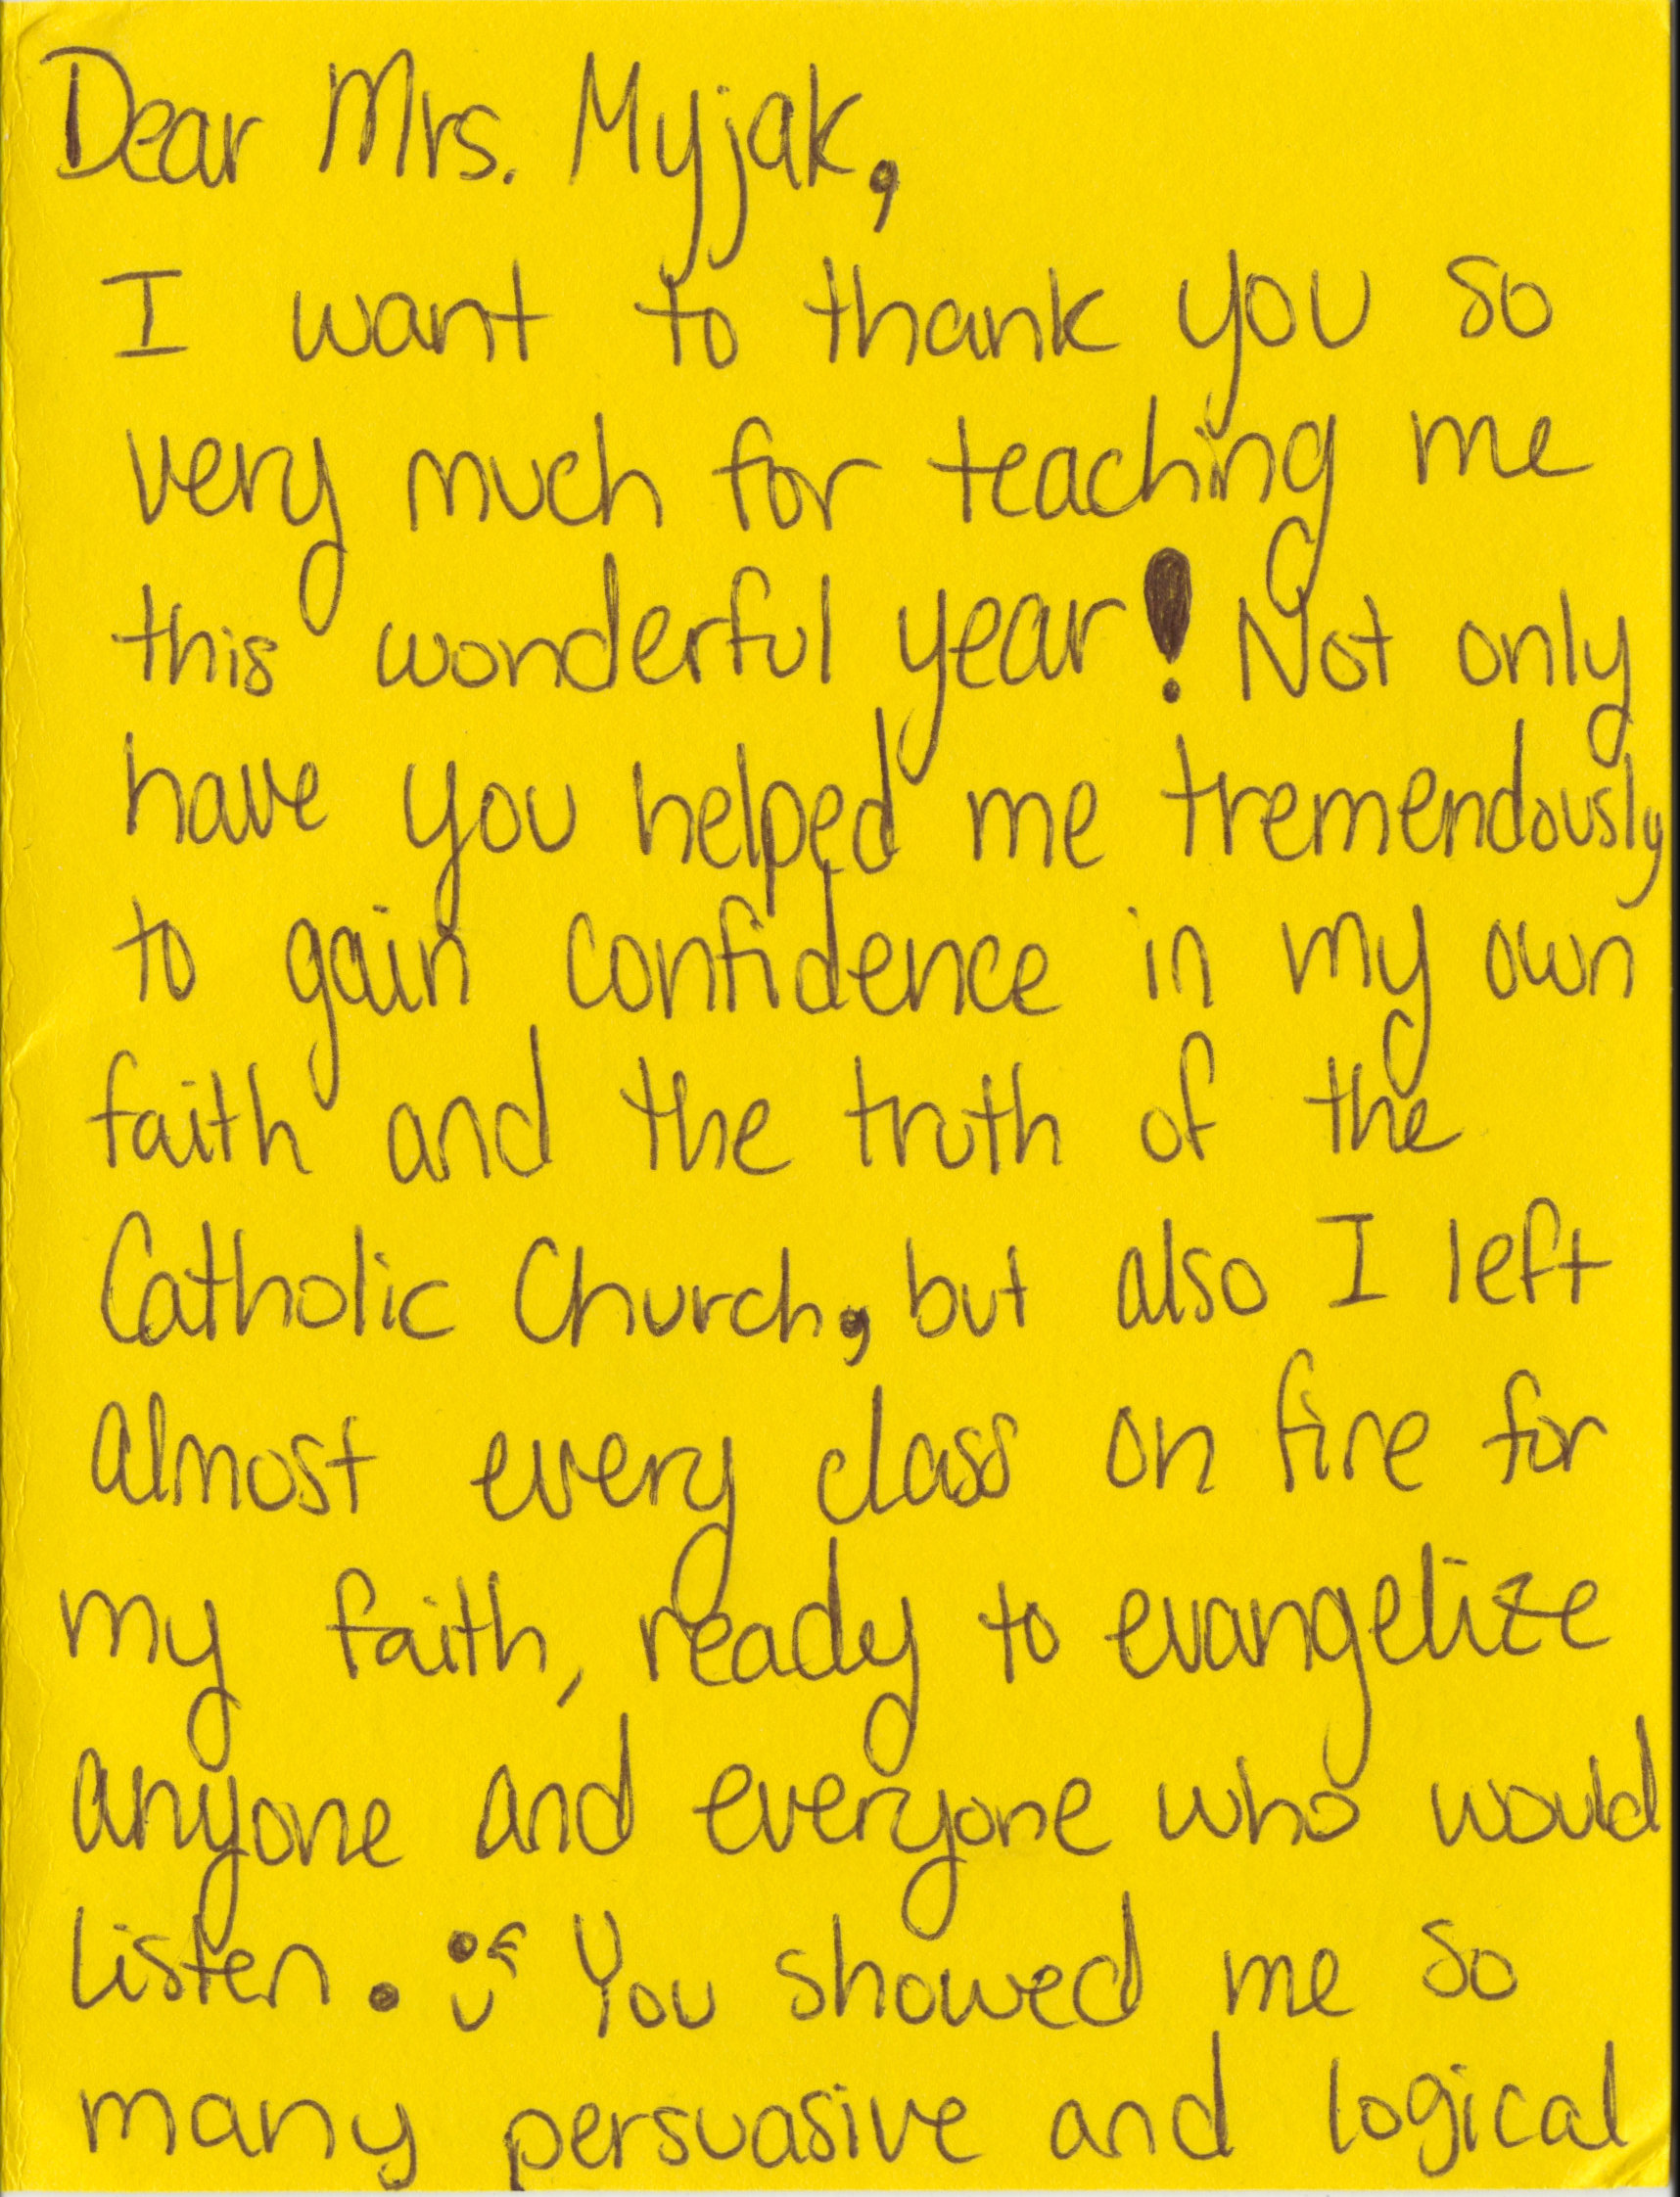 Dear Mrs. Myjak,
I want to thank you so
very much for teaching me
this wonderful year! Not only
have you helped me tremendously
to gain confidence in my own
faith and the truth of the
Catholic Church, but also I left
almost every class on fire for
my faith, ready to evangelize
anyone and everyone who would
listen. You showed me so
many persuasive and logical